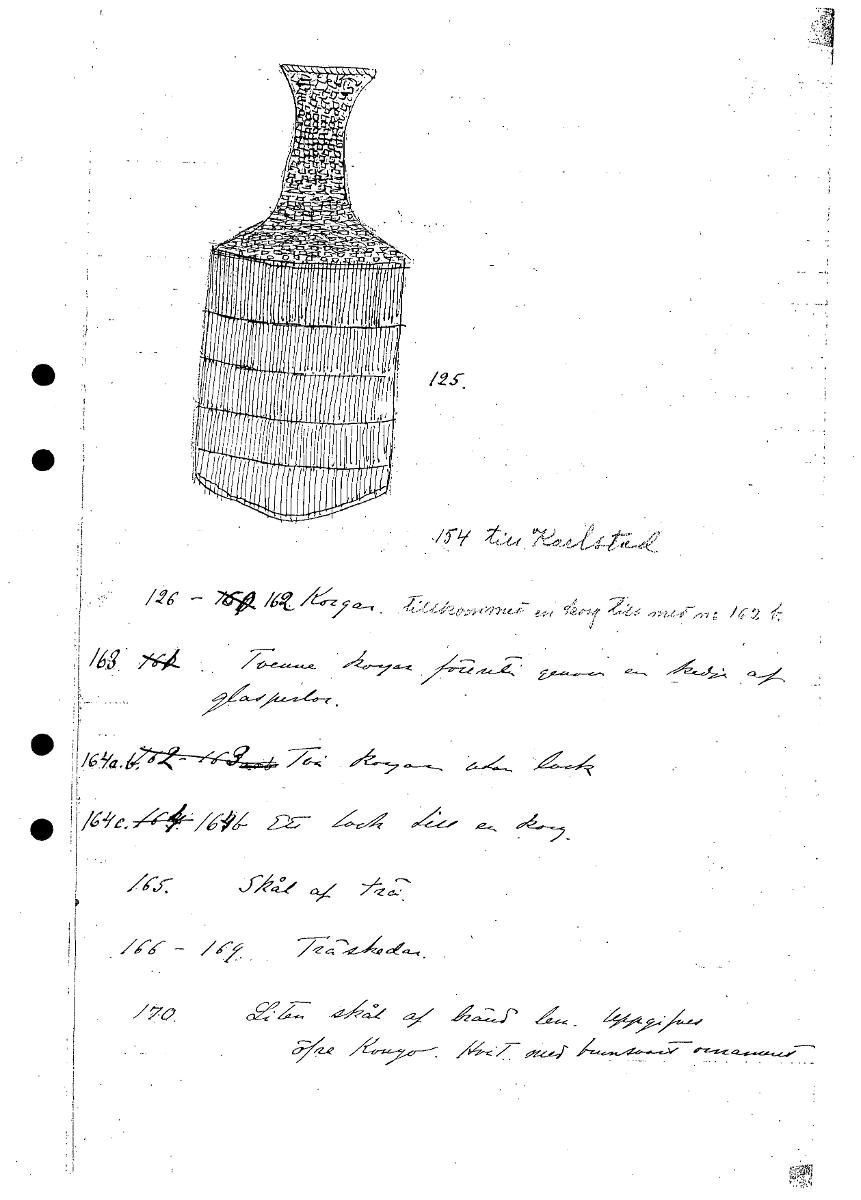 125.
154 till Karlstad
126 - 160 162 Korgar. tillkommer en korg till med no 162 b.
163 161 Tvenne korgar förenta genom en kedja af
glasperlor.
164a.b. 162 - 163 a o b Två korgar utan lock
164c. 164. 164b Ett lock till en korg.
165. Skål af trä.
166 - 169. Träskedar.
170. Liten skål af bränd lera. Uppgifves
öfre Kongo. Hvit med brunsvart ornament